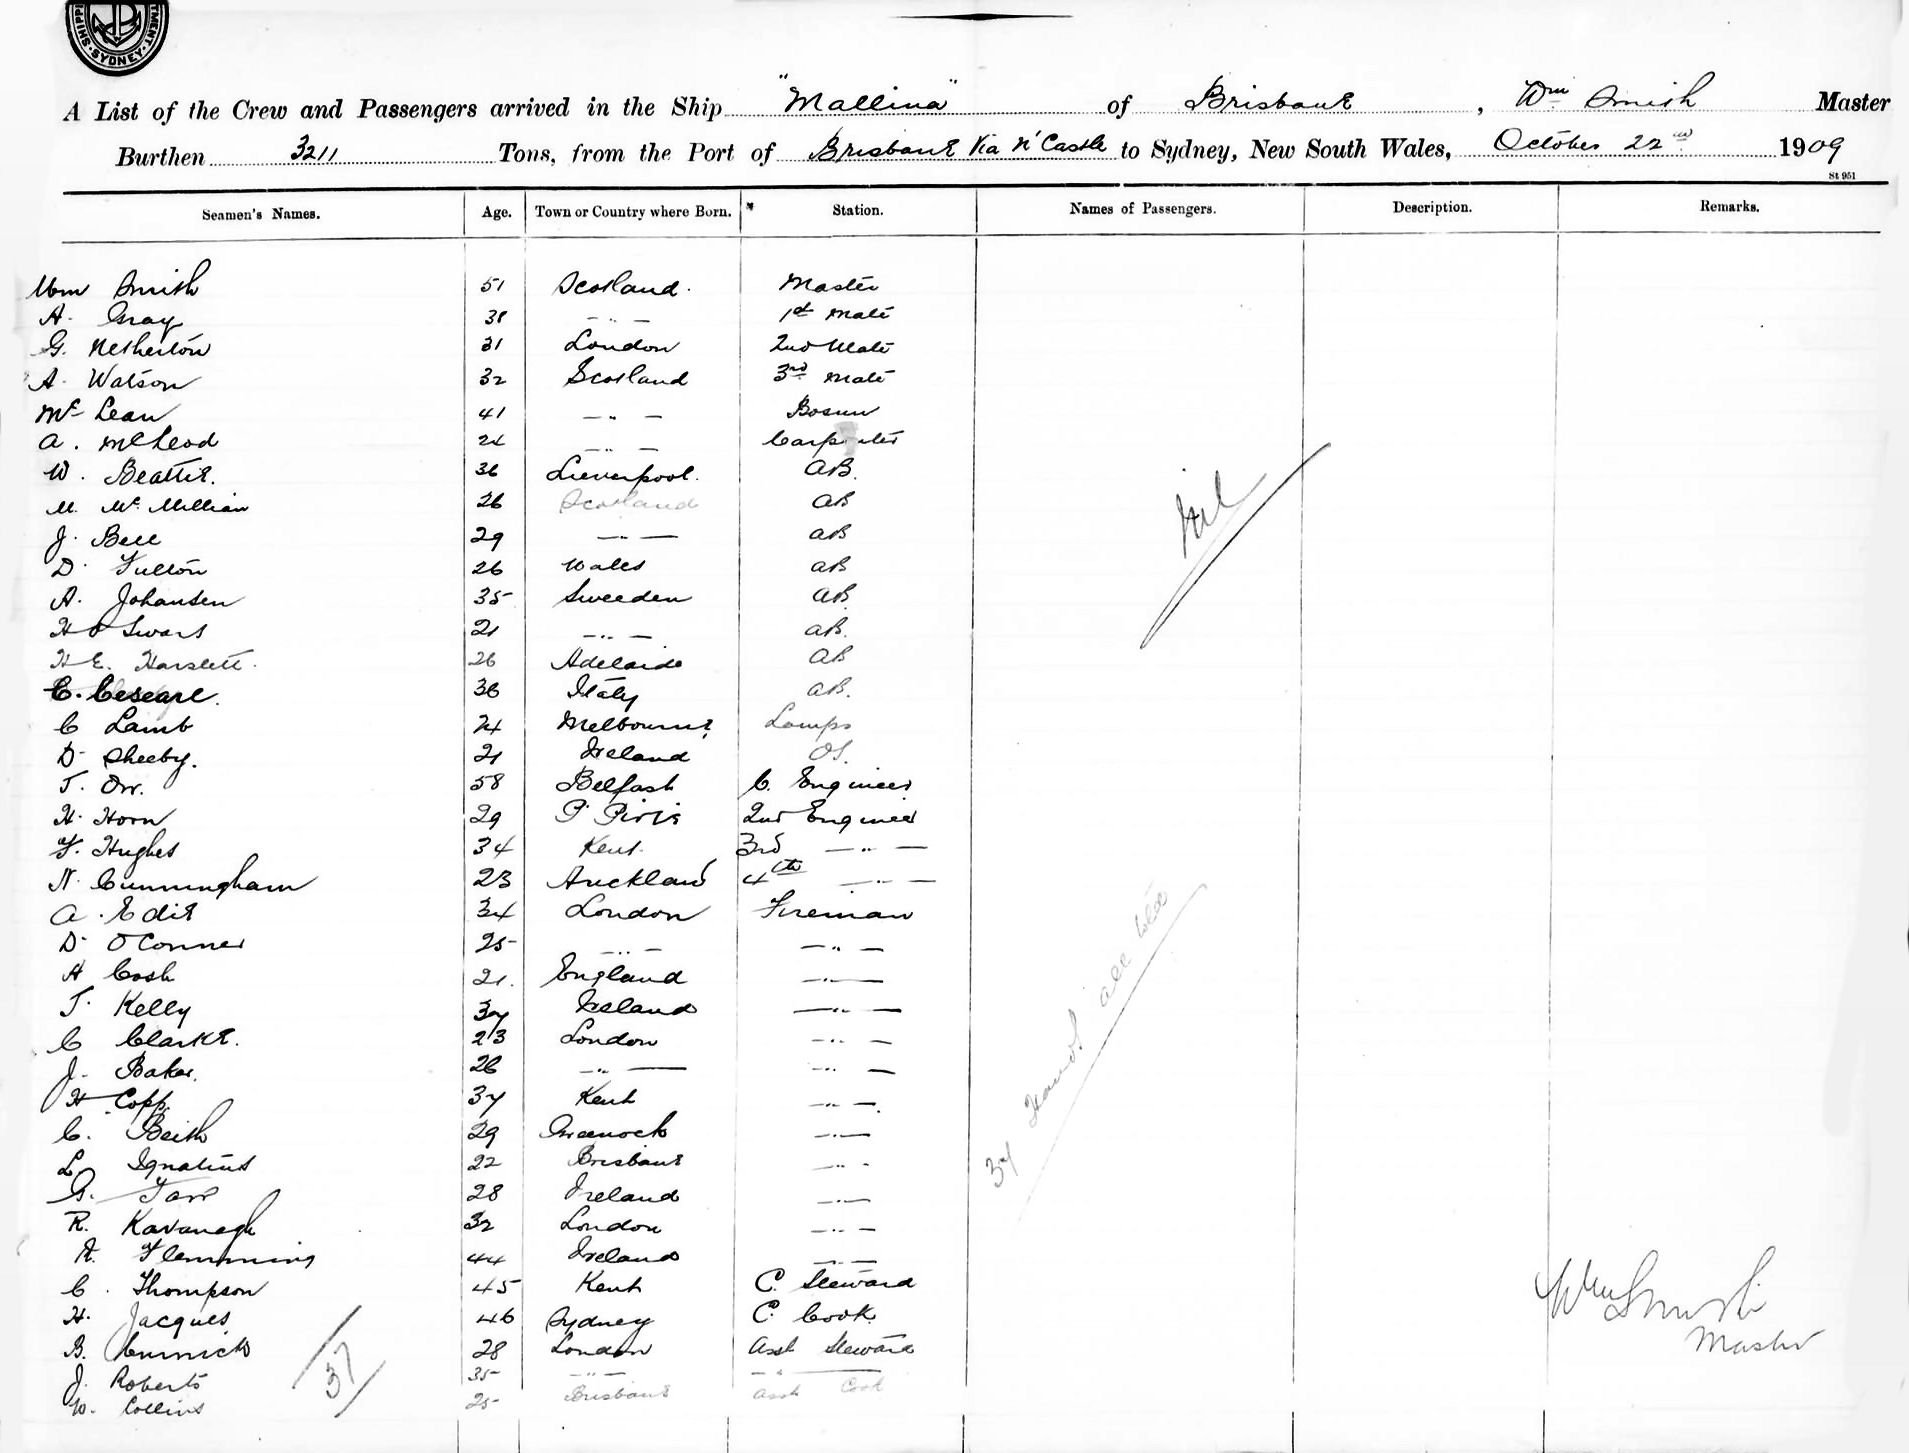 SHIPPI
TMENT
SYDNEY
A List of the Crew and Passengers arrived in the Ship "Mallina" of Brisbane, Wm Smith Master
Burthen 3211 Tons, from the Port of Brisbane Via N'Castle to Sydney, New South Wales, October 22nd 1909
St 951
Seamen's Names. Age. Town or Country where Born. Station. Names of Passengers. Description. Remarks.
Wm Smith 51 Scotland. Master
A. Gray 38 — " — 1st Mate
G. Netherton 31 London 2nd Mate
A. Watson 32 Scotland 3rd Mate
Mc Lean 41 — " — Bosun
A. McLeod 24 — " — Carpenter
W. Beattie. 36 Lieverpool. AB.
M. Mc Millian 26 Scotland AB
J. Bell 29 — " — AB
D. Fulton 26 Wales AB
A. Johansen 35 Sweeden AB.
H Swars 21 — " — AB.
H E. Harslett. 26 Adelaide AB
C. Ceseare. 36 Italy AB.
C Lamb 24 Melbourne Lamps
D. Sheeby. 21 Ireland OS.
T. Orr. 58 Belfast C. Engineer
H. Horn 29 P. Pirie 2nd Engineer
F. Hughes 34 Kent. 3rd — " —
N. Cunningham 23 Auckland 4th — " —
A. Edie 34 London Fireman
D. O'Conner 25 — " — — " —
A Cosh 21. England — " —
T. Kelly 37 Ireland — " —
C Clarke. 23 London — " —
J. Baker. 26 — " — — " —
H Copp 37 Kent — " —
C. Beith 29 Greenock — " —
L Ignatius 22 Brisbane — " —
G. Tarr 28 Ireland — " —
R. Kavanagh 32 London — " —
A. Flemming 44 Ireland — " —
C. Thompson 45 Kent C. Steward
H. Jacques 46 Sydney C. Cook
B. 28 London Asst Steward
J. Roberts 35 — " — — " —
W. Collins 25 Brisbane Asst Cook
Nil
37 Hands all told
37
Wm Smith
Master